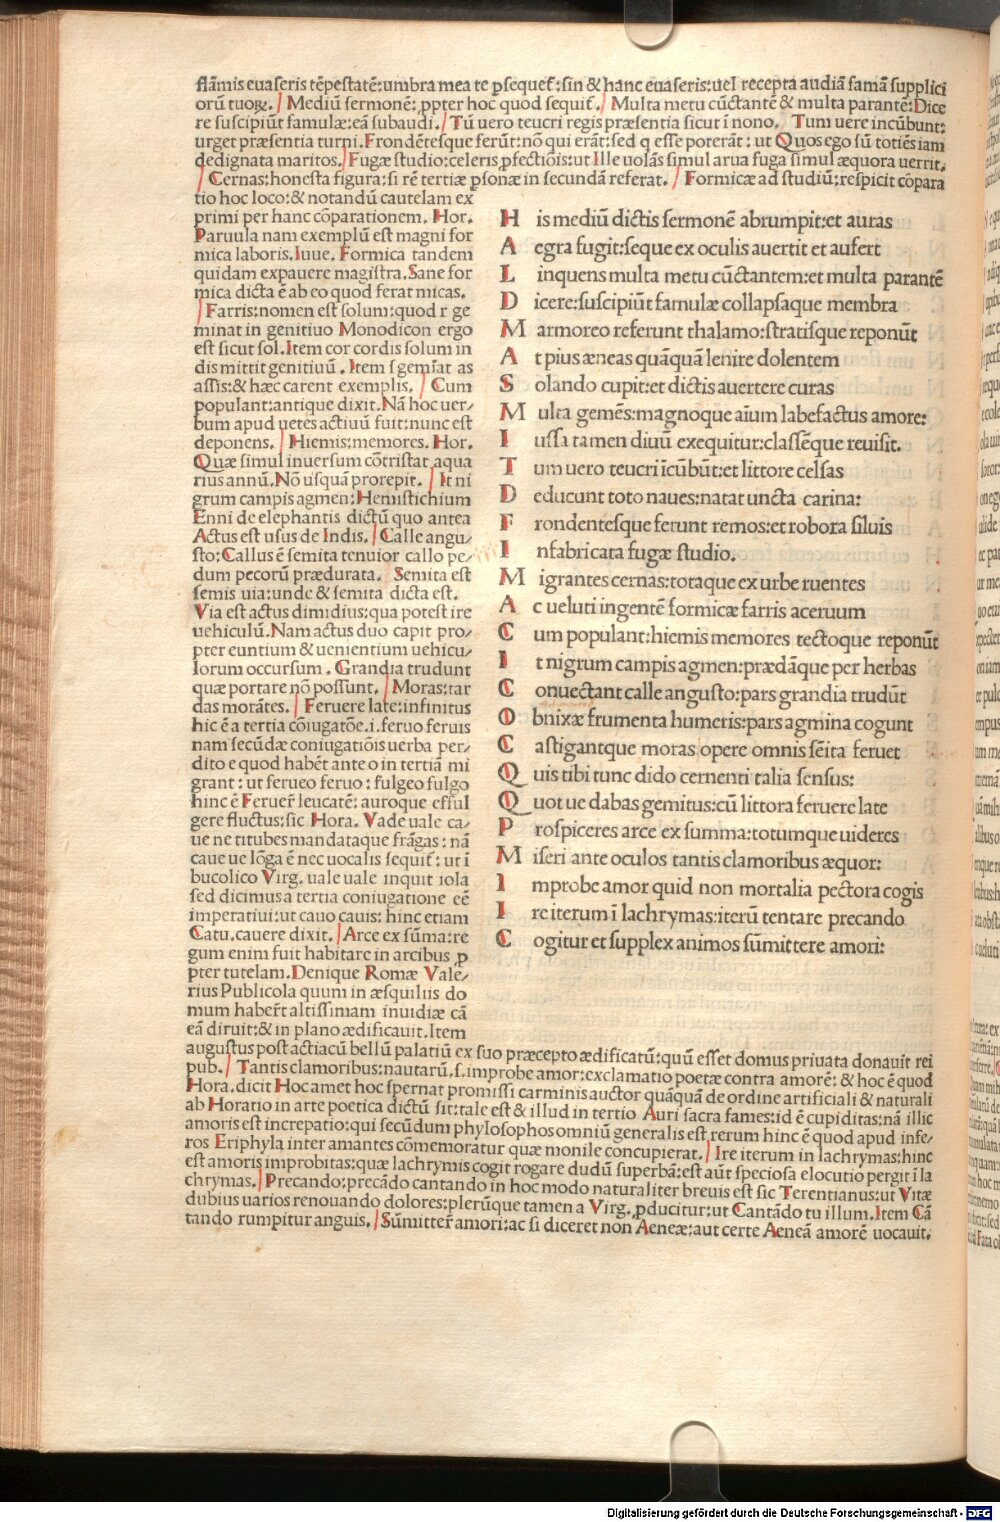 flāmis euaseris tēpestatē:umbra mea te ꝑsequet᷑:sin & hanc euaseris:uel recepta audiā famā supplici
orū tuoꝝ. / Mediū sermonē: ꝓpter hoc quod sequit᷑. / Multa metu cūctantē & multa parantē:Dice
re suscipiūt famulæ:eā subaudi. / Tū uero teucri regis præsentia sicut ī nono. Tum uere incūbunt:
urget præsentia turni. Frondētesque ferūt:nō qui erāt:sed q esse poterāt : ut Quos ego sū totiēs iam
dedignata maritos. / Fugæ studio:celeris ꝓfectiōis:ut Ille uolās simul arua fuga simul æquora uerrit.
/ Cernas:honesta figura:si rē tertiæ ꝑsonæ in secundā referat. / Formicæ ad studiū:respicit cōpara
tio hoc loco:& notandū cautelam ex
primi per hanc cōparationem. Hor.
Paruula nam exemplū est magni for
mica laboris.Iuue. Formica tandem
quidam expauere magistra.Sane for
mica dicta ē ab eo quod ferat micas.
/ Farris:nomen est solum:quod r ge
minat in genitiuo Monodicon ergo
est sicut sol.Item cor cordis solum in
dis mittit genitiuū. Item s gemīat as
assis:& hæc carent exemplis. / Cum
populant:antique dixit.Nā hoc uer/
bum apud ueteres actiuū fuit:nunc est
deponens. / Hiemis:memores. Hor.
Quæ simul inuersum cōtristat aqua
rius annū.Nō usquā prorepit. / It ni
grum campis agmen:Hemistichium
Enni de elephantis dictū quo antea
Actus est usus de Indis. / Calle angu/
sto:Callus ē semita tenuior callo pe/
dum pecorū prædurata. Semita est
semis uia:unde & semita dicta est.
Via est actus dimidius:qua potest ire
uehiculū.Nam actus duo capit pro/
pter euntium & uenientium uehicu/
lorum occursum . Grandia trudunt
quæ portare nō possunt. / Moras:tar
das morātes. / Feruere late:infinitus
hic ē a tertia cōiugatōe.i.feruo feruis
nam secūdæ coniugatiōis uerba per/
dito e quod habēt ante o in tertiā mi
grant : ut ferueo feruo : fulgeo fulgo
hinc ē Feruer̄ leucatē: auroque efful
gere fluctus:sic Hora. Vade uale ca/
ue ne titubes mandataque frāgas : nā
caue ue lōga ē nec uocalis sequit᷑: ut ī
bucolico Virg. uale uale inquit iola
sed dicimus a tertia coniugatione eē
imperatiui:ut cauo cauis: hinc etiam
Catu.cauere dixit. / Arce ex sūma:re
gum enim fuit habitare in arcibus ꝓ
pter tutelam.Denique Romæ Vale/
rius Publicola quum in æsquiliis do
mum haber̄t altissimam inuidiæ cā
eā diruit:& in plano ædificauit.Item
augustus post actiacū bellū palatiū ex suo præcepto ædificatū:quū esset domus priuata donauit rei
pub. / Tantis clamoribus:nautarū.s.improbe amor:exclamatio poetæ contra amorē: & hoc ē quod
Hora.dicit Hoc amet hoc spernat promissi carminis auctor quāquā de ordine artificiali & naturali
ab Horatio in arte poetica dictū sit:tale est & illud in tertio Auri sacra fames:id ē cupiditas:nā illic
amoris est increpatio:qui secūdum phylosophos omniū generalis est rerum hinc ē quod apud infe/
ros Eriphyla inter amantes cōmemoratur quæ monile concupierat. / Ire iterum in lachrymas:hinc
est amoris improbitas:quæ lachrymis cogit rogare dudū superbā:est aūt speciosa elocutio pergit ī la
chrymas. / Precando:precādo cantando in hoc modo naturaliter breuis est sic Terentianus:ut Vitæ
dubius uarios renouando dolores:plerūque tamen a Virg. ꝓducitur:ut Cantādo tu illum.Item Cā
tando rumpitur anguis. / Sūmitter̄ amori:ac si diceret non Aeneæ:aut certe Aeneā amorē uocauit.
H is mediū dictis sermonē abrumpit:et auras
A egra fugit:seque ex oculis auertit et aufert
L inquens multa metu cūctantem:et multa parantē
D icere:suscipiūt famulæ collapsaque membra
M armoreo referunt thalamo:stratisque reponūt
A t pius æneas quāquā lenire dolentem
S olando cupit:et dictis auertere curas
M ulta gemēs:magnoque aīum labefactus amore:
I ussa tamen diuū exequitur:classēque reuisit.
T um uero teucri īcūbūt:et littore celsas
D educunt toto naues:natat uncta carina:
F rondentesque ferunt remos:et robora siluis
I nfabricata fugæ studio.
M igrantes cernas:totaque ex urbe ruentes
A c ueluti ingentē formicæ farris aceruum
C um populant:hiemis memores tectoque reponūt
I t nigrum campis agmen:prædāque per herbas
C onuectant calle angusto:pars grandia trudūt
O bnixæ frumenta humeris:pars agmina cogunt
C astigantque moras opere omnis sēita feruet
Q uis tibi tunc dido cernenti talia sensus:
Q uot ue dabas gemitus:cū littora feruere late
P rospiceres arce ex summa:totumque uideres
M isceri ante oculos tantis clamoribus æquor:
I mprobe amor quid non mortalia pectora cogis
I re iterum ī lachrymas:iterū tentare precando
C ogitur et supplex animos sūmittere amori:
Digitalisierung gefördert durch die Deutsche Forschungsgemeinschaft - DFG